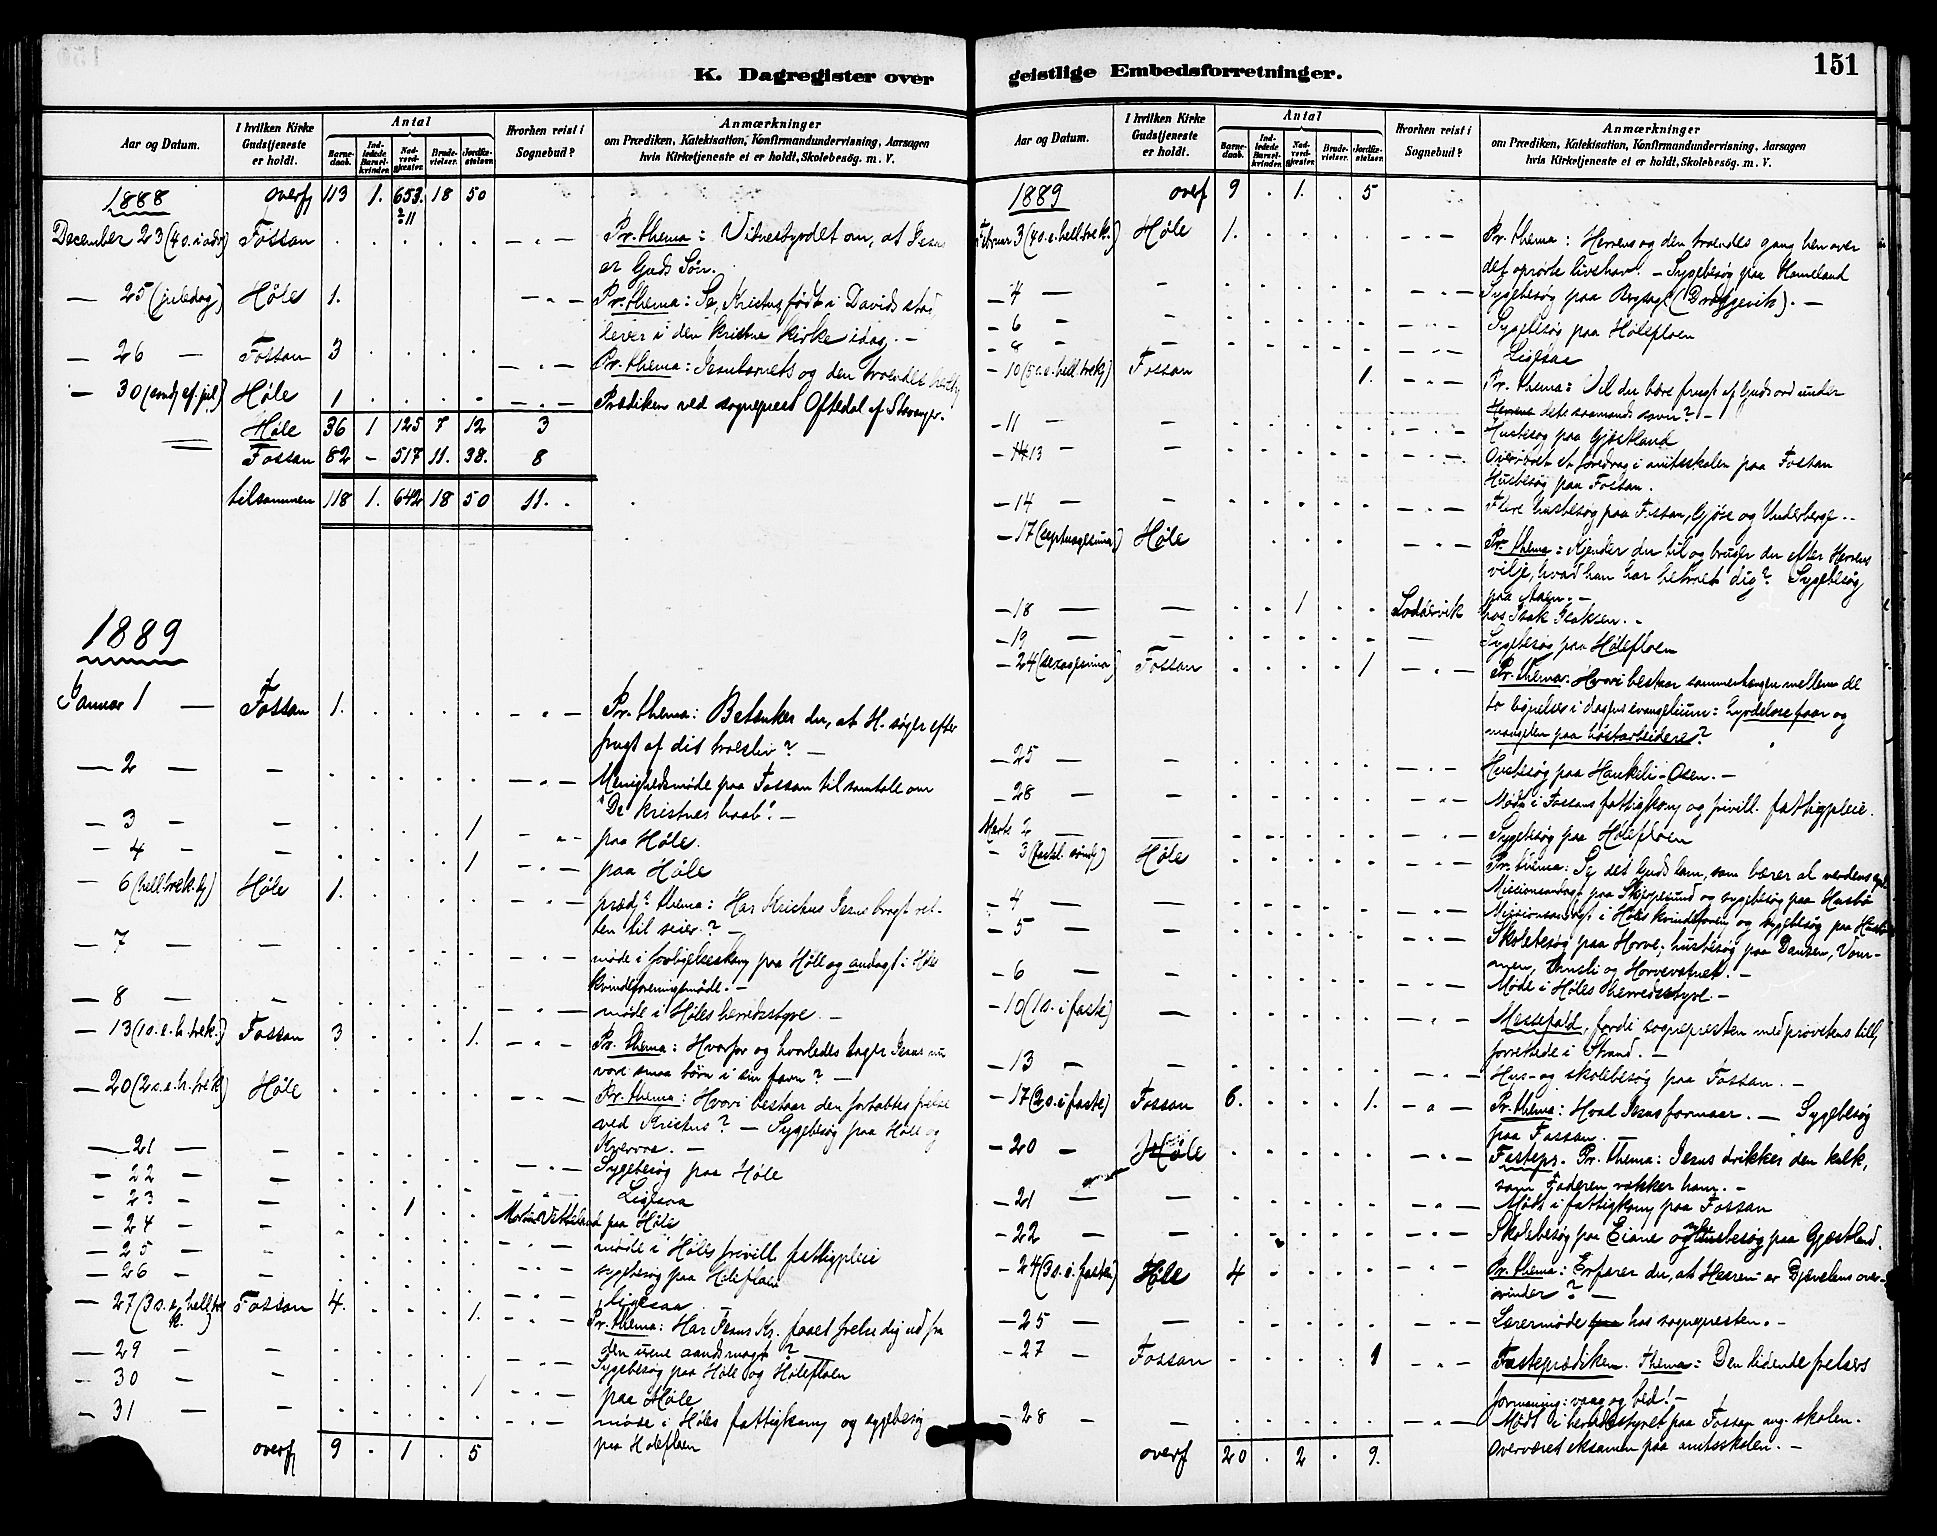 K. Dagregister over
Aar og Datum.
I hvilken Kirke Gudstjeneste er holdt.
Antal
Barnedaab.
Indledede Barselkvinder.
Nadverdgjester.
Brudevielser.
Jordfæstelser.
Hvorhen reist i Sognebud?
Anmærkninger
om Prædiken, Katekisation, Konfirmandundervisning, Aarsagen
hvis Kirketjeneste ei er holdt, Skolebesög. m. V.
1888 overf 113 1. 653. 18 50
2/11
December 23 (4 s. i adv) Fossan Pr. thema: Vidnesbyrdet om, at Jesus
er Guds Søn.
— 25 (juledag) Høle 1. Pr. thema: Se, Kristus, født i Davids stad
lever i den kristne kirke idag. —
— 26 — Fossan 3 Pr. thema: Jesubarnets og den troendes
— 30 (sönd ef. jul) Høle 1 Prædiken ved sogneprest Oftedal af Stavanger.
Høle 36 1 125 7 12 3
Fossan 82 — 517 11. 38. 8
tilsammen 118 1. 642 18 50 11.
1889
Januar 1 — Fossan 1. Pr. thema: Betænker du, at H. søger efter
frugt af dit troesliv? —
— 2 — Menighedsmøde paa Fossan til samtale om
"De kristnes haab". —
— 3 — 1 paa Høle.
— 4 — 1 paa Høle
— 6 (hell. trek. dg) Høle 1. præd. thema: Har Kristus Jesus bragt ret-
ten til seier? —
— 7 — møde i forligelseskom paa Høle og andagt i Høle
kvindeforeningsmøde. —
— 8 — møde i Høles herredsstyre. —
— 13 (1 s. e. h. trek.) Fossan 3 1. Pr. thema: Hvorfor og hvorledes tager Jesus nu
vore smaa børn i sin favn? —
— 20 (2 s. e. h. trek) Høle Pr. thema: Hvori bestaar den fortabtes frelse
ved Kristus? — Sygebesøg paa Høle og
— 21 — —
— 22 — Sygebesøg paa Høle
— 23 — Ligesaa
— 24 — 1 paa Høle
— 25 — møde i Høles frivill. fattigpleie
— 26 — sygebesøg paa Holefloen
— 27 (3 s. e. hell. trek.) Fossan 4. 1. ligesaa —
Pr. thema: Har Jesus Kr. faaet frelse dig ud fra
den urene aands magt? —
— 29 — Sygebesøg paa Høle og Hølefloen
— 30 — 1 paa Høle
— 31 — møde i Høles fattigkom og sygebesøg
paa Holefloen
overf 9 . 1 . 5
geistlige Embedsforretninger.
151
Aar og Datum.
I hvilken Kirke Gudstjeneste er holdt.
Antal
Barnedaab.
Indledede Barselkvinder.
Nadverdgjester.
Brudevielser.
Jordfæstelser.
Hvorhen reist i Sognebud?
Anmærkninger
om Prædiken, Katekisation, Konfirmandundervisning, Aarsagen
hvis Kirketjeneste ei er holdt, Skolebesög. m. V.
1889 overf 9 . 1. . 5
Februar 3 (4 s. e. hell. trek.) Høle 1. Pr. thema: Herrens og den troendes gang hen over
det oprørte livshav. — Sygebesøg paa Hameland
— 4 — Sygebesøg paa Bergsagel (Dreggevik). —
— 6 — Sygebesøg paa Hølefloen
— 8 — Ligesaa
— 10 (5 s. e. hell. trek) Fossan 1. Pr. thema: Vil du bære frugt af Guds ord under
dets saamands savn? —
— 11 — Husbesøg paa Gjøstland
— 13 Overværet et foredrag i amtsskolen paa Fossan
Husbesøg paa Fossan.
— 14 — Flere husbesøg paa Fossan, Gjøse og Underberge —
— 17 (septuagesima) Høle Pr. thema: Kjender du til og bruger du efter Herrens
vilje, hvad han har betroet dig? Sygebesøg
paa Aasen. —
— 18 — 1 Loddervik hos Isak Isaksen. —
— 19 — Sygebesøg paa Hølefloen
— 24 (sexagesima) Fossan 1 Pr. Thema: Hvori bestaar sammenhængen mellem de
to lignelser i dagens evangelium: hyrdeløse faar og
mangelen paa høstarbeidere?
— 25 — Husbesøg paa Haukeli-Osen. —
— 28 — Møde i Fossans fattigkom og frivill. fattigpleie.
Marts 2 — Sygebesøg paa Hølefloen
— 3 (fastel. søndg) Høle Pr. thema: Se det Guds lam, som bærer al verdens synd
— 4 — Missionsandagt paa Skjepesund og sygebesøg paa Husbø
— 5 — Missionsandagt i Høles kvindeforeng og sygebesøg paa Husbø
Skolebesøg paa Horve, husbesøg paa Dansen, Vour-
— 6 — men, og Horvevatnet. —
Møde i Høles herredsstyre. —
— 10 (1 s. i faste) — Messefald, fordi sognepresten med provstens till.
forrettede i Strand. —
— 13 — Hus- og skolebesøg paa Fossan. —
— 17 (2 s. i faste) Fossan 6. 1. Pr. thema: Hvad Jesus formaar. — Sygebesøg
paa Fossan. —
— 20 — Høle Fastepr. Pr. thema: Jesus drikker den kalk,
som Faderen rækker ham. —
— 21 — Møde i fattigkom paa Fossan
— 22 — Skolebesøg paa Eiane og husbesøg paa Gjøstland.
— 24 (3 s. i faste) Høle 4 Pr. thema: Erfarer du, at Herren er Djævelens over-
vinder? —
— 25 — Lærermøde hos sognepresten. —
— 27 — Fossan 1 Fasteprædiken. Thema: Den lidende frelsers
formaning: vaag og bed! —
— 28 — Møde i herredsstyret paa Fossan ang. skolen.
overværet eksamen paa amtsskolen. —
overf 20 . 2 . 9.